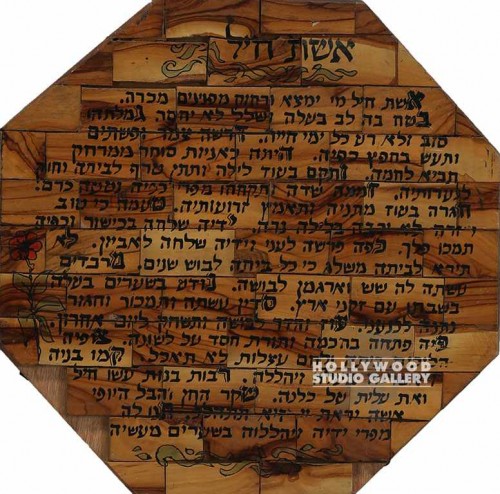 אשת חיל
אשת חיל מי ימצא ורחוק מפנינים מכרה.
בטח בה לב בעלה ושלל לא יחסר. גמלתהו
טוב ולא רע כל ימי חייה. דרשה צמר ופשתים
ותעש בחפץ כפיה. היתה כאניות סוחר ממרחק
תביא לחמה. ותקם בעוד לילה ותתן טרף לביתה וחק
לנערותיה. זממה שדה ותקחהו מפרי כפיה נטעה כרם.
חגרה בעוז מתניה ותאמץ זרועותיה. טעמה כי טוב
לא יכבה בלילה נרה. ידיה שלחה בכישור וכפיה
תמכו פלך. כפה פרשה לעני וידיה שלחה לאביון. לא
תירא לביתה משלג כי כל ביתה לבוש שנים. מרבדים
עשתה לה שש וארגמן לבושה. נודע בשערים בעלה
בשבתו עם זקני ארץ. סדין עשתה ותמכור וחגור
נתנה לכנעני. עוז והדר לבושה ותשחק ליום אחרון
פיה פתחה בחכמה ותורת חסד על לשונה. צופיה
ולחם עצלות לא תאכל. קמו בניה
ויהללה. רבות בנות עשו חיל
ואת עלית על כלנה. שקר החן והבל היופי
אשה יראת
מפרי ידיה ויהללוה בשערים מעשיה
HOLLYWOOD
STUDIO GALLERY